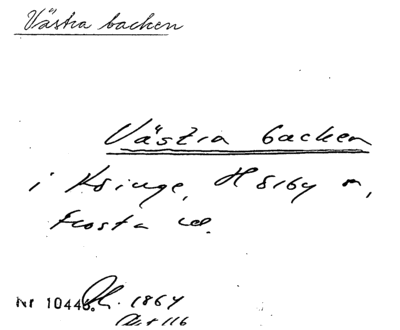 Västra backen
Västra backen
i Ksinge, Hörby sn,
Frosta hd.
Nr 10446. 1864
Akt 116